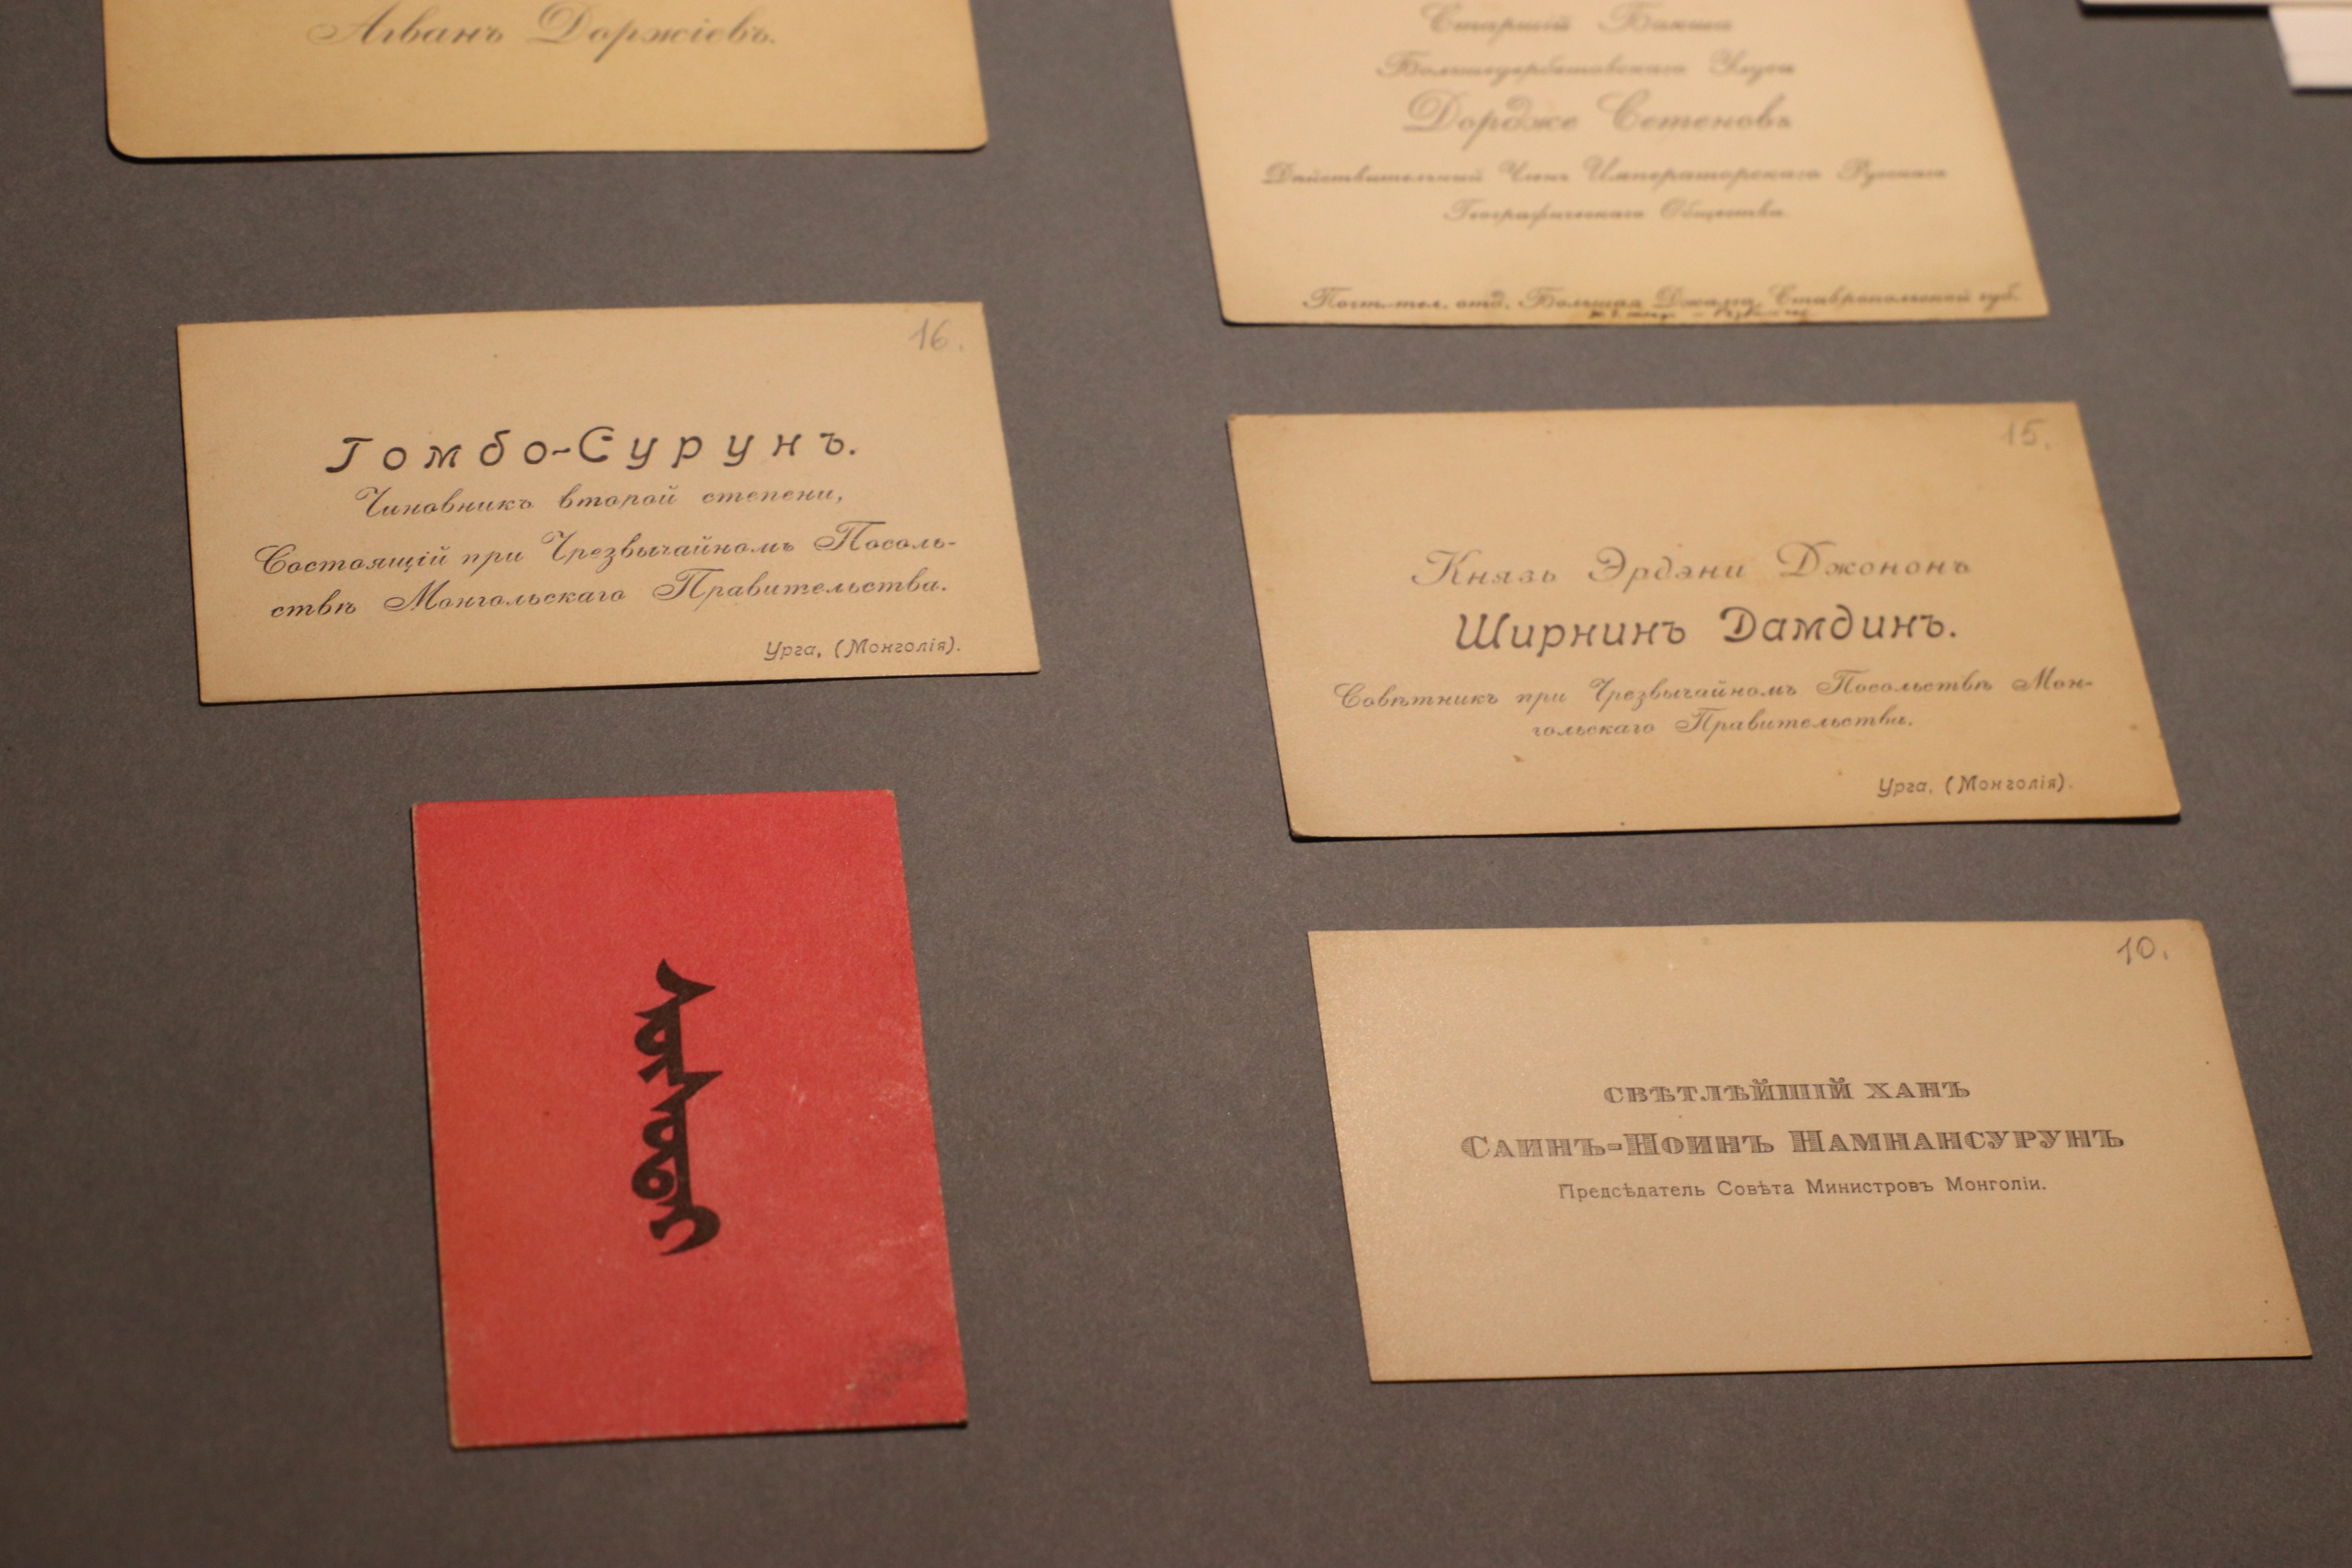 Агванъ Доржіевъ.
Старшій Бакша
Большедербетовскаго Улуса
Дордже Сетеновъ
Дѣйствительный Членъ Императорскаго Русскаго
Географическаго Общества.
Почт.-тел. отд. Большая Джалга, Ставропольской губ.
16.
Гомбо-Сурунъ.
Чиновникъ второй степени,
Состоящій при Чрезвычайномъ Посоль-
ствѣ Монгольскаго Правительства.
Урга, (Монголія).
15.
Князь Эрдэни Джононъ
Ширнинъ Дамдинъ.
Совѣтникъ при Чрезвычайномъ Посольствѣ Мон-
гольскаго Правительства.
Урга, (Монголія).
10.
СВѢТЛѢЙШІЙ ХАНЪ
САИНЪ-НОИНЪ НАМНАНСУРУНЪ
Предсѣдатель Совѣта Министровъ Монголіи.